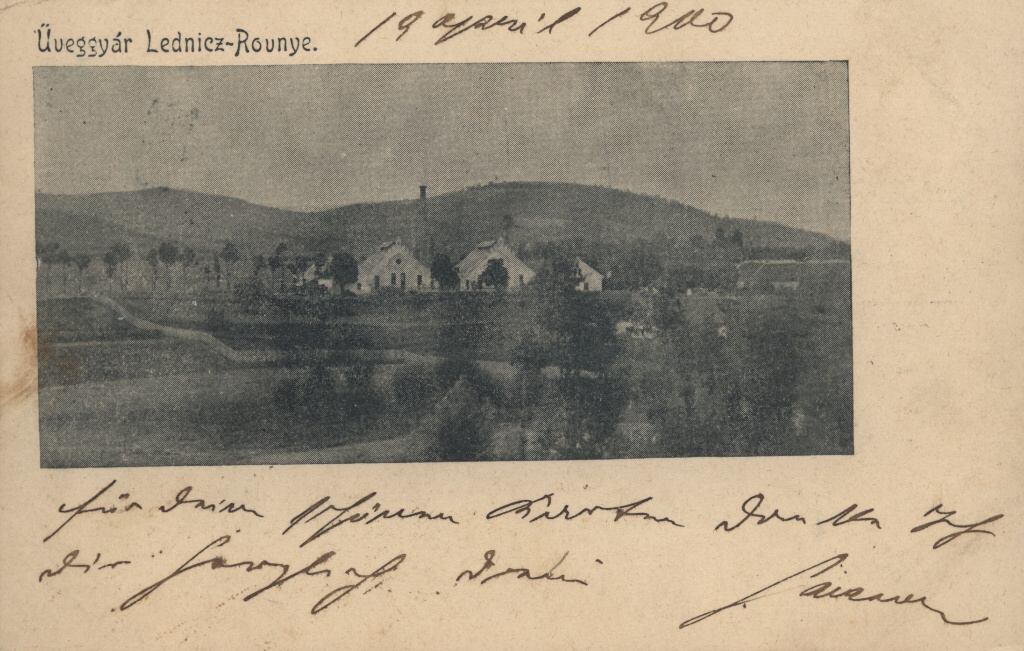 Üveggyár Lednicz-Rovnye.
19 april 1900
für Deine schönen Karten danke Ich
dir herzlich. Deine